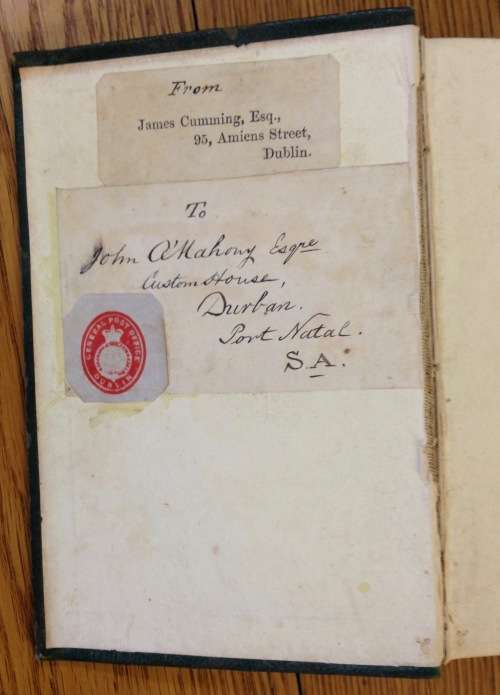 From
James Cumming, Esq.,
95, Amiens Street,
Dublin.
To
John O'Mahony Esqre
Custom House,
Durban.
Port Natal.
S.A.
GENERAL POST OFFICE
DUBLIN